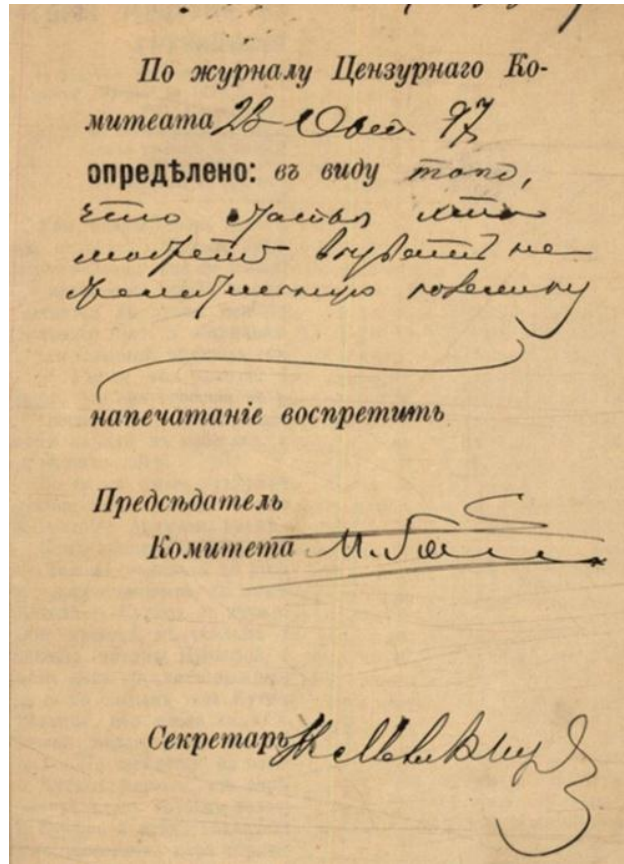 По журналу Цензурнаго Ко-
митеата 28 97
опредѣлено: въ виду того,
что статья эта
может вызвать не-
желательную полемику
напечатаніе воспретить
Предсѣдатель
Комитета М.
Секретарь